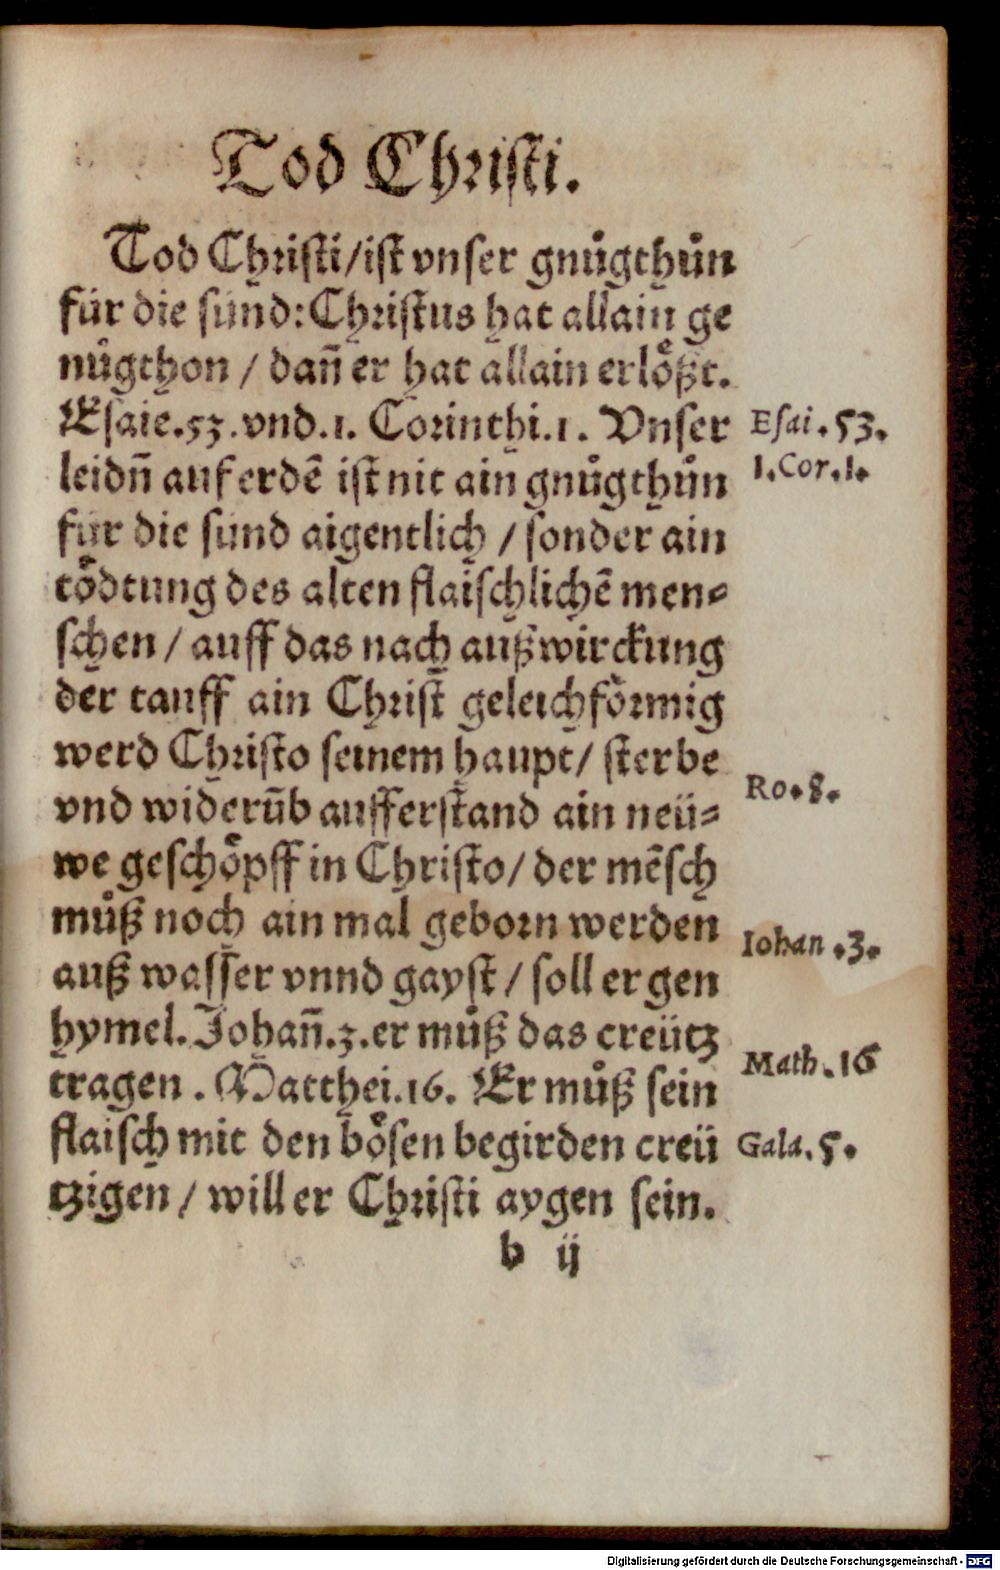 Tod Christi.
Tod Christi/ist vnser gnůgthůn
für die sünd: Christus hat allain ge
nůgthon / dañ er hat allain erlößt.
Esaie.53.vnd.1. Corinthi.1. Vnser
Esai.53.
1.Cor.1.
leidñ auf erdẽ ist nit ain gnůgthůn
für die sünd aigentlich / sonder ain
tödtung des alten flaischlichẽ men⸗
schen / auff das nach außwirckung
der tauff ain Christ geleichförmig
werd Christo seinem haupt/ sterbe
Ro.8.
vnd widerũb aufferstand ain neü⸗
we geschöpff in Christo/ der mẽsch
můß noch ain mal geborn werden
Iohan.3.
auß wasser vnnd gayst / soll er gen
hymel. Johañ.3.er můß das creütz
Math.16
tragen . Matthei.16. Er můß sein
flaisch mit den bösen begirden creü
Gala.5.
tzigen / will er Christi aygen sein.
b ij
Digitalisierung gefördert durch die Deutsche Forschungsgemeinschaft - DFG